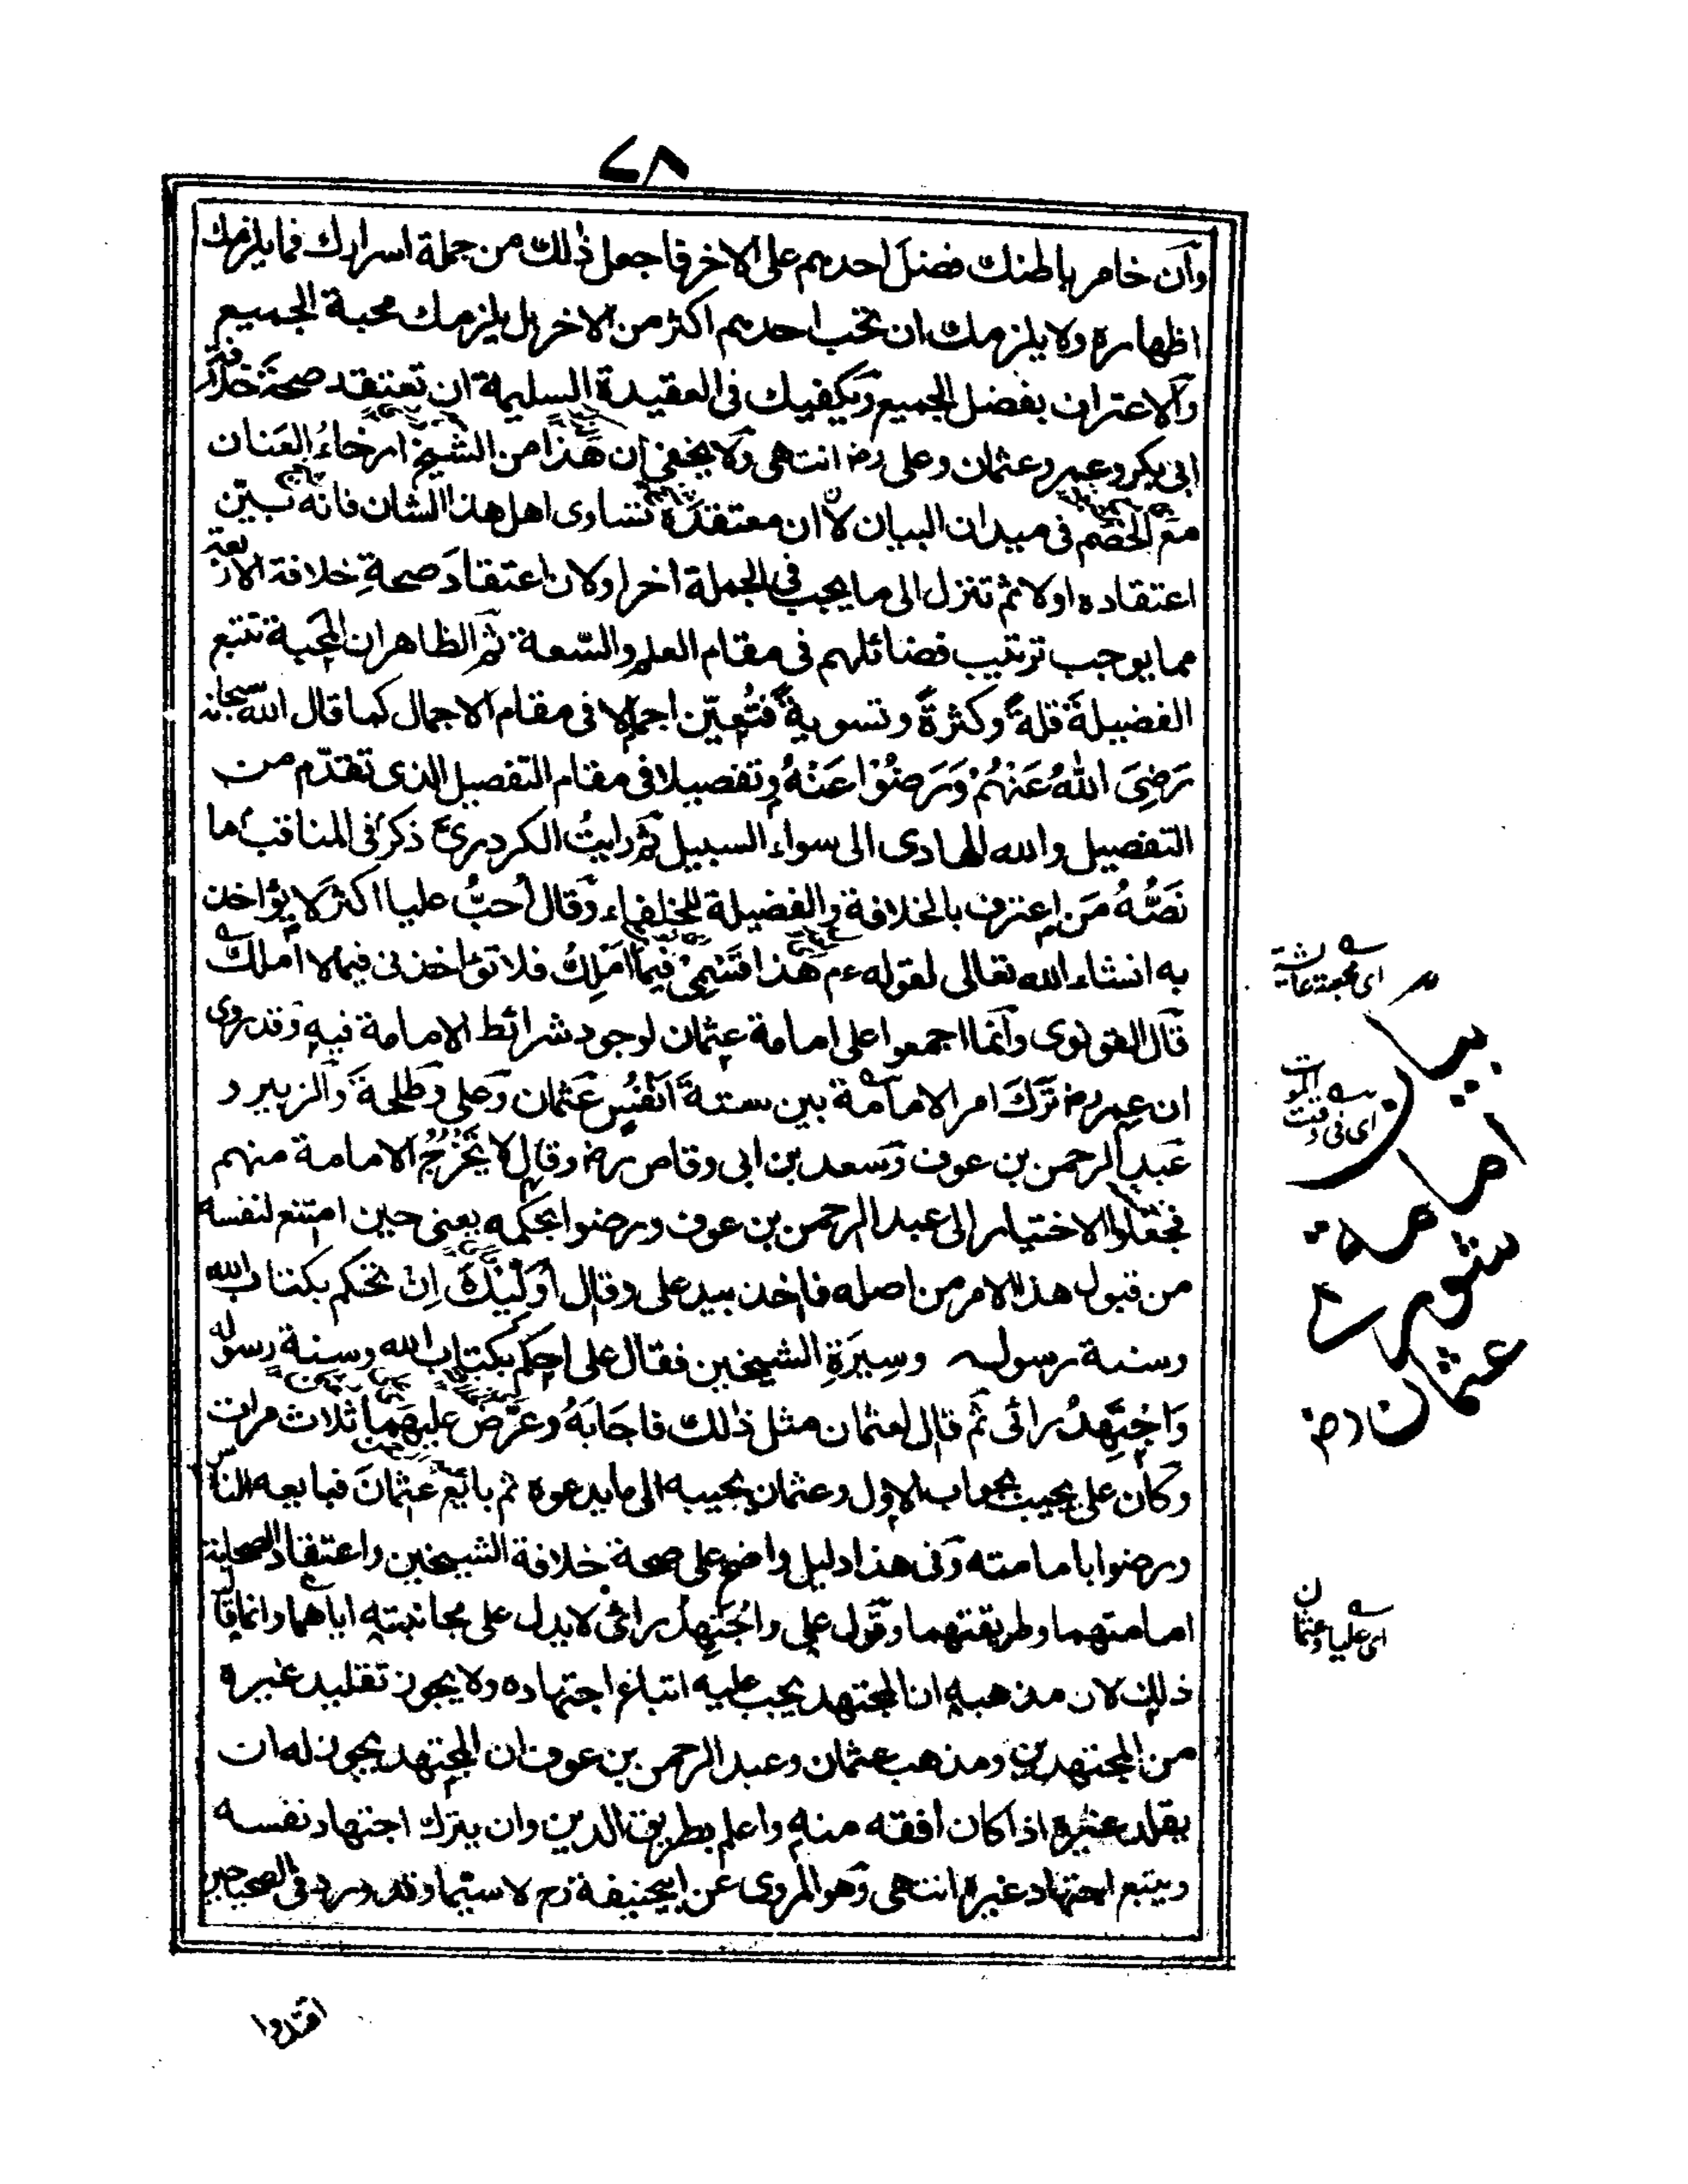 ٧٨
وان خامر باطنك فضل احدهم على الاخر فاجعل ذلك من جملة اسرارك فما يلزمك
اظهاره ولا يلزمك ان تحب احدهم اكثر من الاخر بل يلزمك محبة الجميع
والاعتراف بفضل الجميع ويكفيك فى العقيدة السليمة ان تعتقد صحة خلافة
ابى بكر وعمر وعثمان وعلى رض انتهى ولا يخفى ان هذا من الشيخ ارخاءُ العَنان
مع الخصم فى ميدان البيان لا ان معتقده تساوى اهل هذا الشان فانه بيّن
اعتقاده اولا ثم تنزل الى ما يجب فى الجملة اخرا ولان اعتقادَ صحةِ خلافة الاربعة
مما يوجب ترتيب فضائلهم فى مقام العلم والسّعة ثم الظاهر ان المحبة تتبع
الفضيلةَ قلةً وكثرةً وتسويةً فتُعيّن اجمالا فى مقام الاجمال كما قال الله سبحانه
رَضِىَ اللهُ عَنْهُمْ وَرَضُوْا عَنْهُ وتفصيلا فى مقام التفصيل الذى تقدّم من
التفصيل والله الهادى الى سواء السبيل ثم رايتُ الكردرى ذكر فى المناقب ما
نَصُّهُ مَن اعترف بالخلافة والفضيلة للخلفاء وقال اُحبُّ عليا اكثر لا يؤاخذ
به انشاء الله تعالى لقوله ءم هذا قَسْمِىْ فيما اَمْلِكُ فلا تؤاخذنى فيما لا املك
قال القونوى وانما اجمعوا على امامة عثمان لوجود شرائط الامامة فيه وقد روى
ان عمر رض تَرَكَ امر الامامة بين ستةَ اَنْفُسٍ عثمان وعلى وطلحةَ والزبير و
عبد الرحمن بن عوف وسعد بن ابى وقاص رض وقال لا يَخْرُجُ الامامة منهم
فجعلوا الاختيار الى عبد الرحمن بن عوف ورضوا بحكمه يعنى حين امتنع لنفسه
من قبول هذا الامر من اصله فاخذ بيد على وقال اُوَلِّيْكَ اِن تحكم بكتاب الله
وسنة رسوله وسِيرَةِ الشيخين فقال على احكم بكتاب الله وسنة رسوله
وَاجْتَهِدُ برائى ثم قال لعثمان مثل ذلك فاجابَهُ وعرَضَ عليهما ثلاث مرات
وكان على يجيب بجواب الاول وعثمان يجيبه الى ما يدعوه ثم بايعَ عثمانَ فبايعه الناس
ورضوا بامامته وفى هذا دليل واضح على صحة خلافة الشيخين واعتقاد الصحابة
امامتهما وطريقتهما وقول على واجْتَهِدُ برائى لا يدل على مجانبته اياهما وانما قال
ذلك لان مذهبه ان المجتهد يجب عليه اتباع اجتهاده ولا يجوز تقليد غيره
من المجتهدين ومذهب عثمان وعبد الرحمن بن عوف ان المجتهد يجوز له ان
يقلد غيره اذا كان افقه منه واعلم بطريق الدين وان يترك اجتهاد نفسه
ويتبع اجتهاد غيره انتهى وهو المروى عن ابيحنيفة رح لا سيما وقد ورد فى الصحيحين
اقتدوا
اى محبة عائشة
بيان
امامة
عثمان رض
اى فى وقت الموت
اى عليا وعثمان